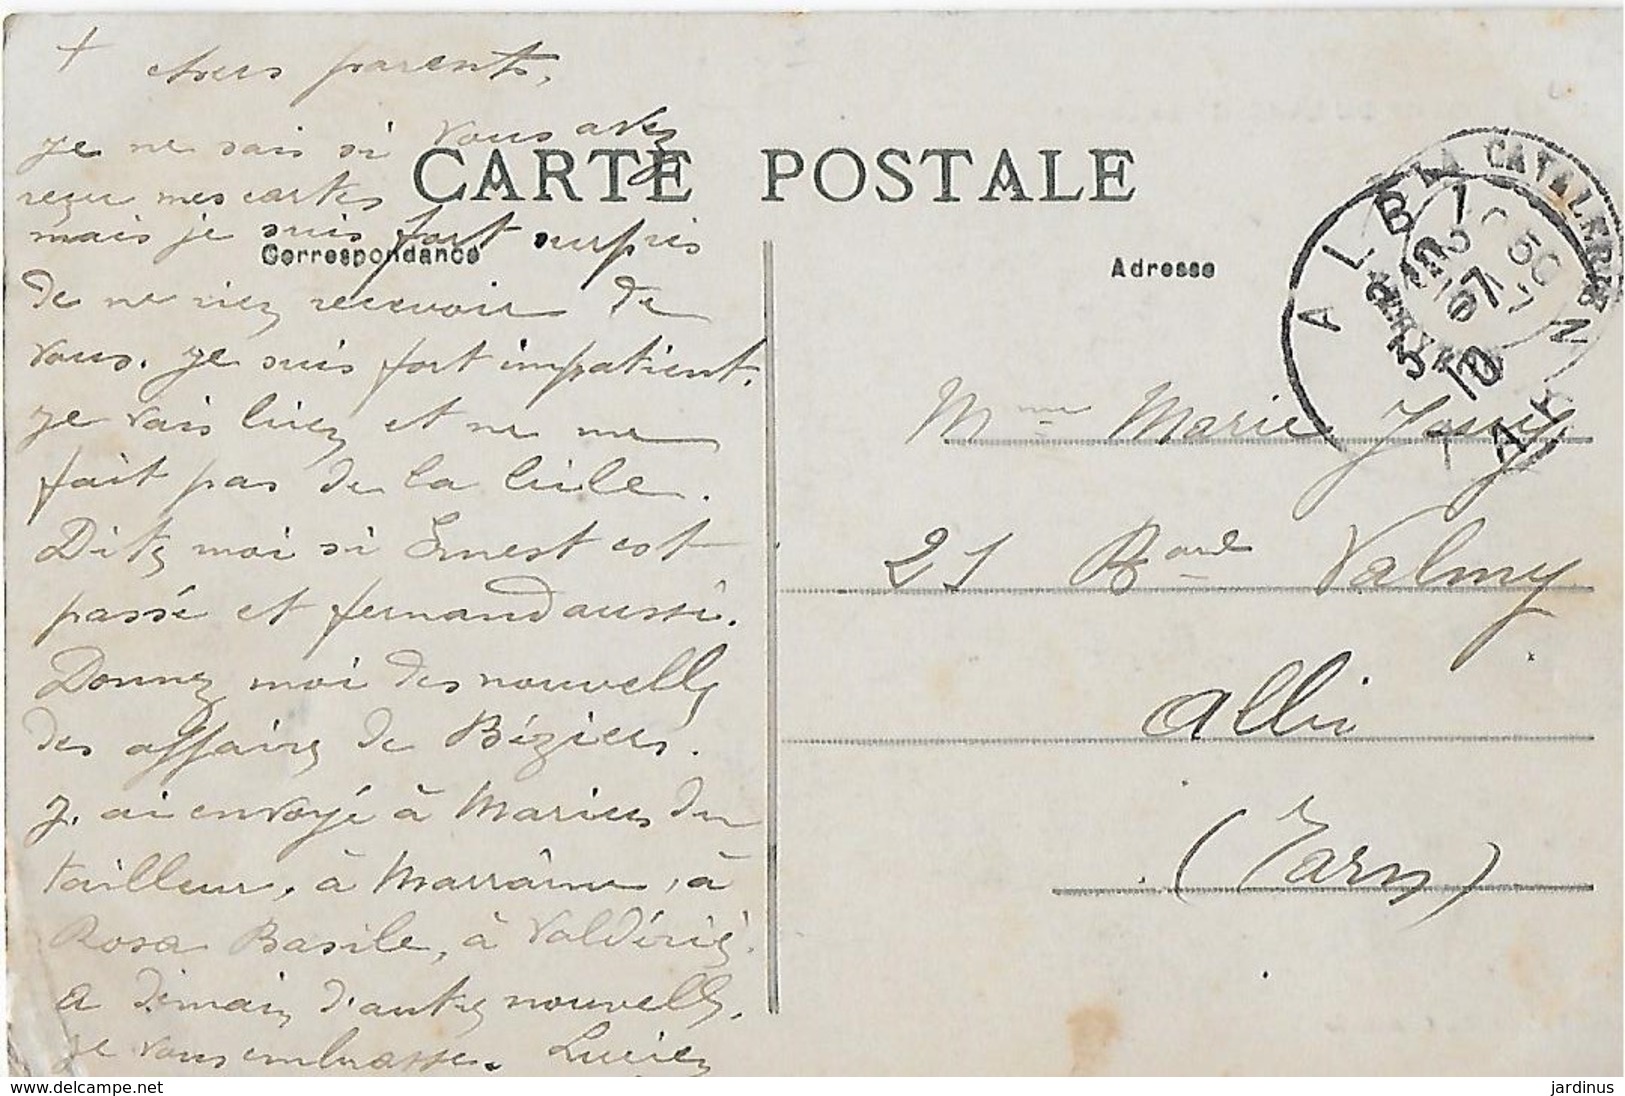 + chers parents,
je ne sais si vous avez
reçu mes cartes
mais je suis fort surpris
de ne rien recevoir de
vous. je suis fort impatient.
je vais bien et ne me
fait pas de la bile.
Dites moi si Ernest est
passé et fernand aussi.
Donnez moi des nouvelles
des affaires de Béziers.
J'ai envoyé à Marius du
tailleur, à Marraine, à
Rosa Basile, à Valdériès.
a demain d'autres nouvelles.
je vous embrasse. Lucien
CARTE POSTALE
Correspondance
Adresse
ALBI
TARN
LA CATALERIE
Mme Marie
21 Bard Valmy
Albi
(Tarn)
www.delcampe.net
jardinus